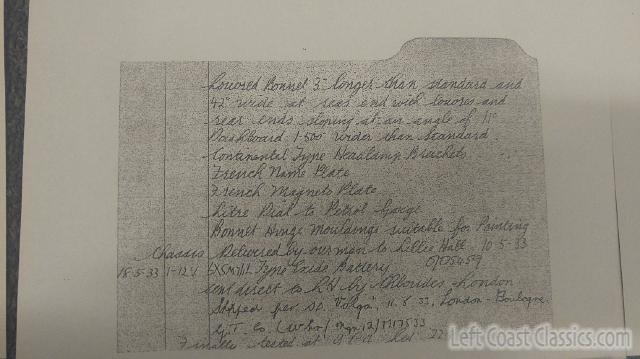 Louvred Bonnet 3" longer than standard and
42" wide at rear end with louvres and
rear ends sloping at an angle of 11°
Dashboard 1.500" wider than standard.
Continental Type Headlamp Brackets
French Name Plate
French Magneto Plate
Litre Dial to Petrol Gauge
Bonnet Hinge Mouldings suitable for Painting
Chassis Delivered by our man to Lillie Hall 10-5-33
18.5.33 1-12V Type Exide Battery
sent direct to by Chlorides, London
Shipped per s.s. "Volga", 11.8.33, London - Boulogne.
Finally tested at 22
Left Coast Classics.com